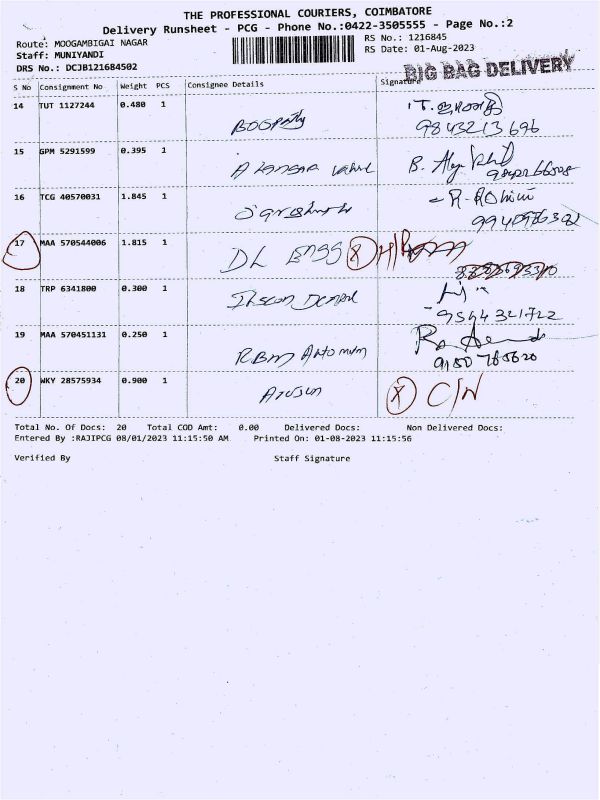 THE PROFESSIONAL COURIERS, COIMBATORE
Delivery Runsheet - PCG - Phone No.:0422-3505555 - Page No.:2
Route: MOOGAMBIGAI NAGAR
Staff: MUNIYANDI
DRS No.: DCJB121684502
RS No.: 1216845
RS Date: 01-Aug-2023
BIG BAG DELIVERY
S No Consignment No Weight PCS Consignee Details Signature
14 TUT 1127244 0.480 1
9843213696
15 GPM 5291599 0.395 1
16 TCG 40570031 1.845 1
R. ROhini
17 MAA 570544006 1.815 1 DL ENGG X
18 TRP 6341800 0.300 1
9594321722
19 MAA 570451131 0.250 1 RBM
20 WKY 28575934 0.900 1 X C/N
Total No. Of Docs: 20 Total COD Amt: 0.00 Delivered Docs: Non Delivered Docs:
Entered By :RAJIPCG 08/01/2023 11:15:50 AM Printed On: 01-08-2023 11:15:56
Verified By Staff Signature